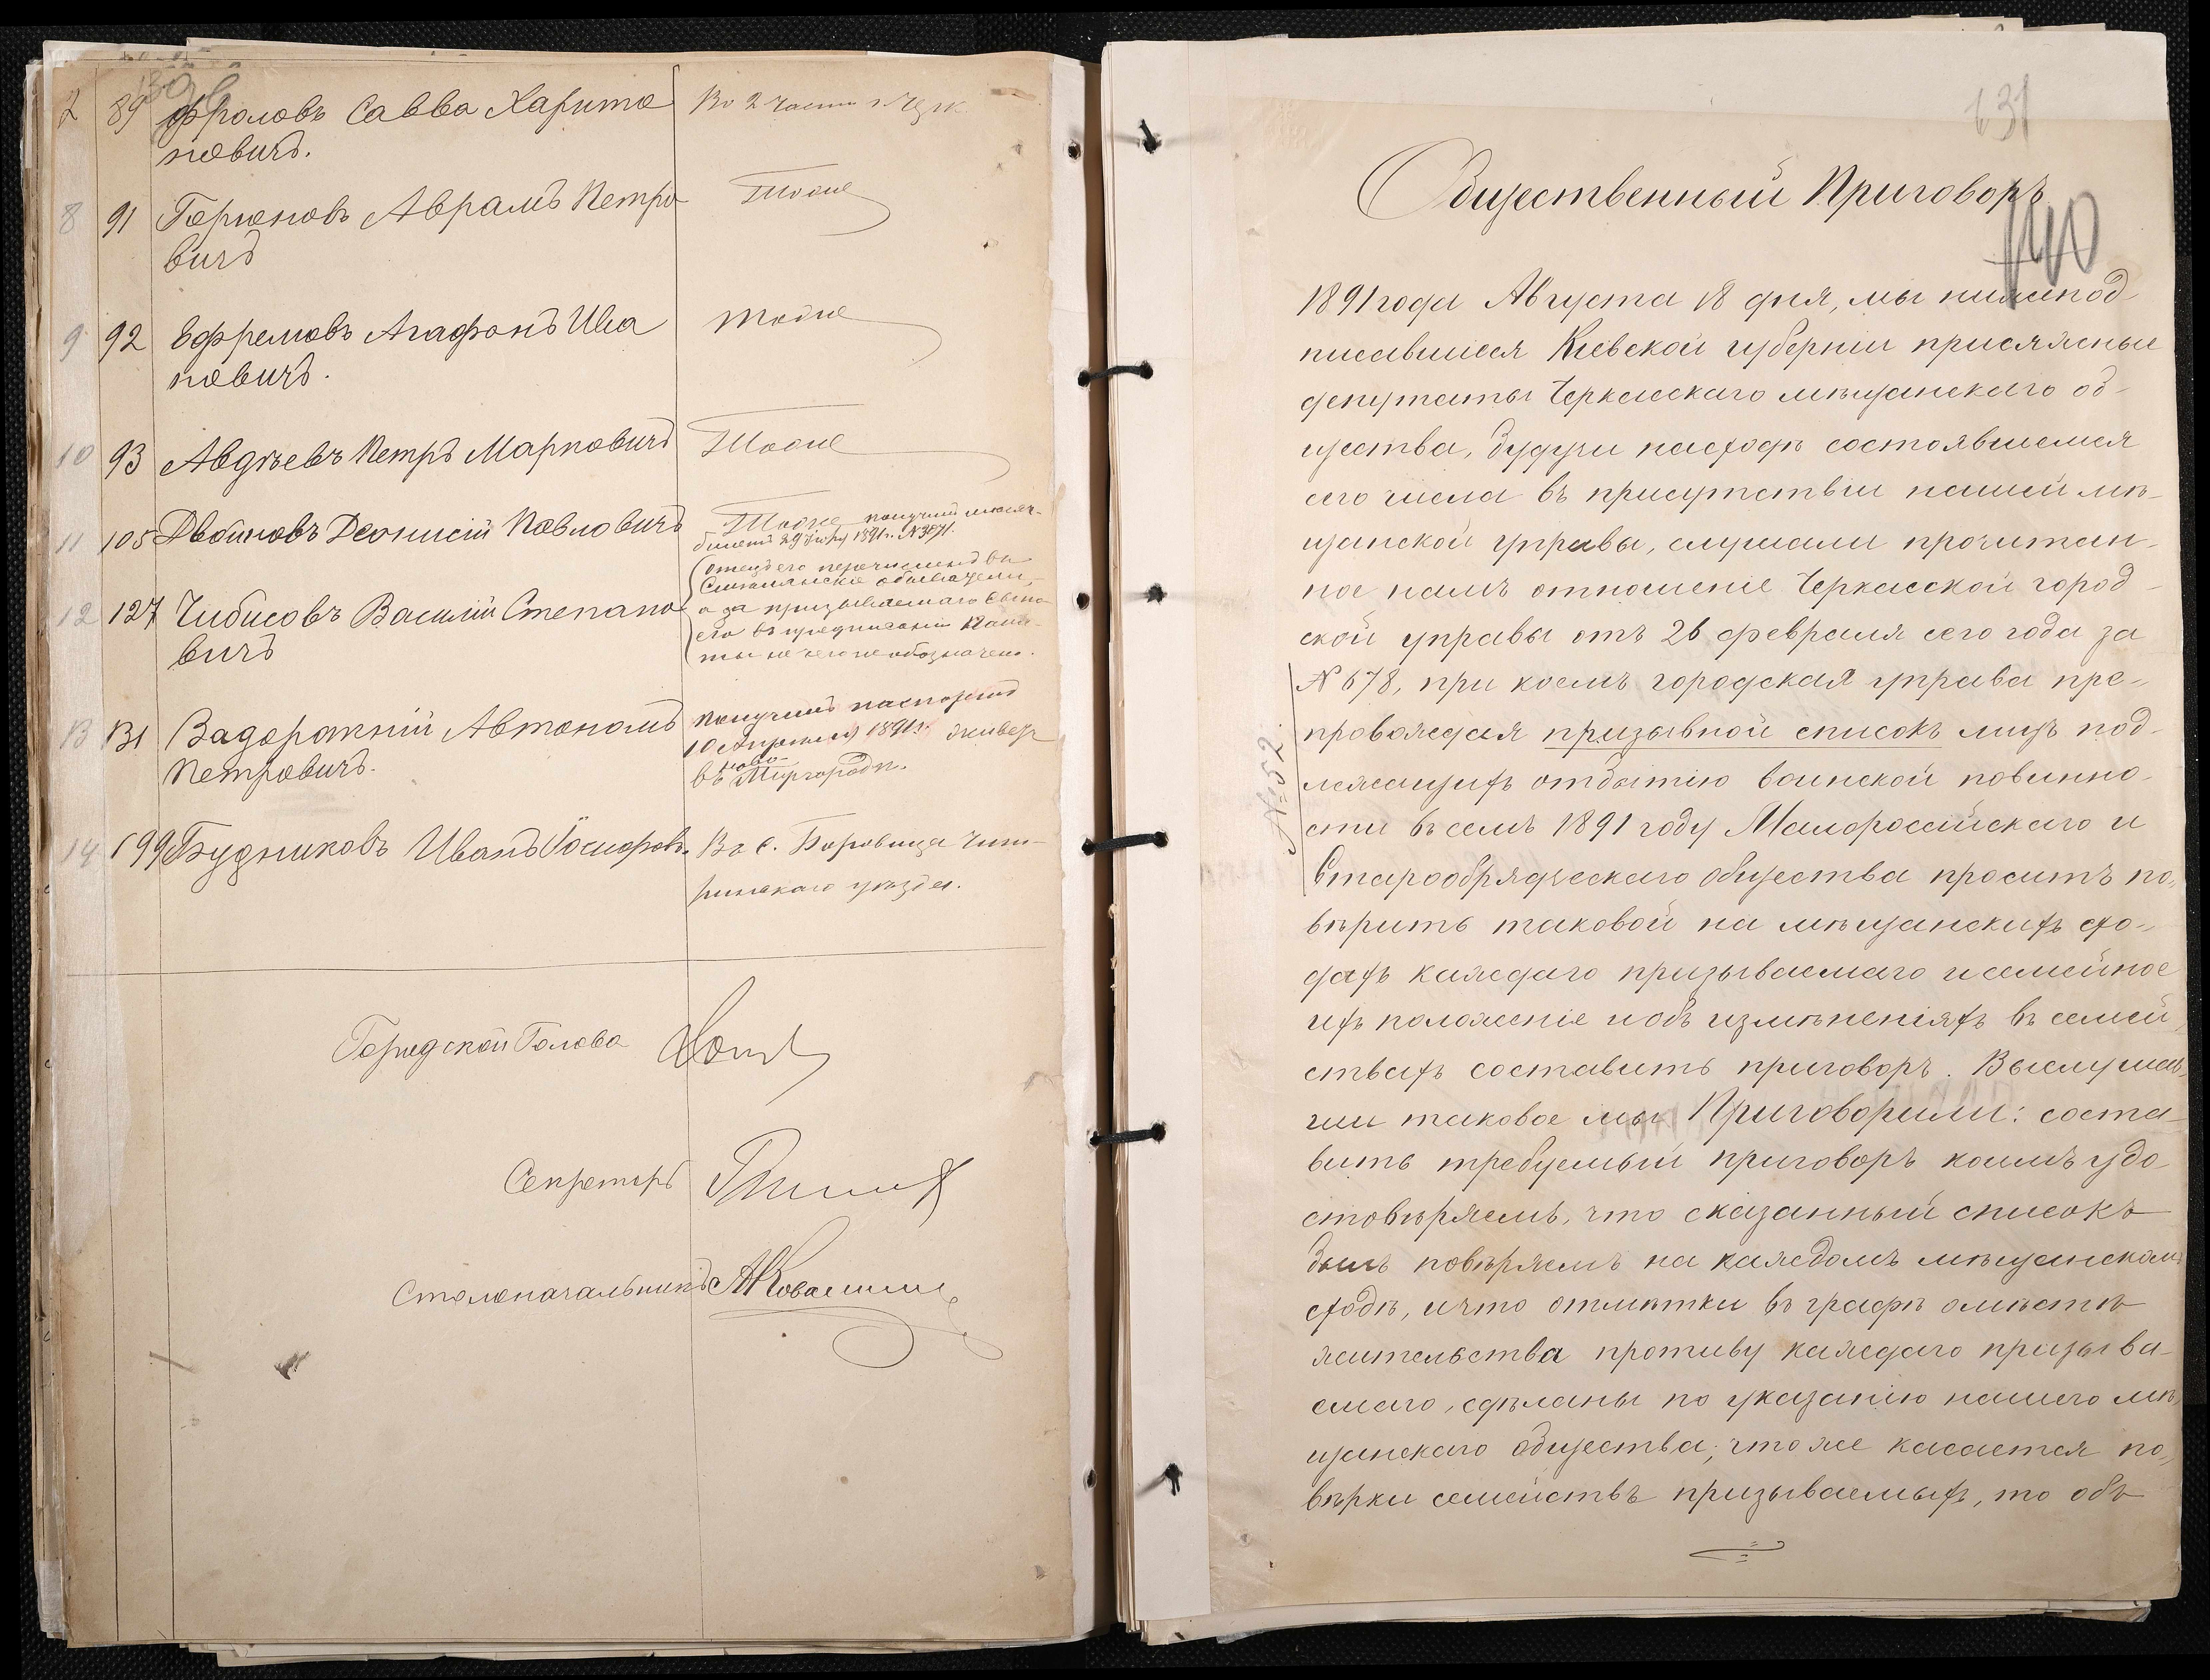 130
7 89 Фроловъ Савва Харито Во 2 части г. Черк
новичъ.
8 91 Горюновъ Аврамъ Петро Тоже
вичъ
9 92 Ефремовъ Агафонъ Ива тоже
новичъ.
10 93 Авдѣевъ Петръ Марковичъ Тоже
11 105 Двоиновъ Деонисій Павловичъ Тоже получилъ
билетъ 29 1891 г. №
12 127 Чибисовъ Василій Степано
вичъ
отецъ его перечисленъ въ
Смелянскіе обыватели,
а за призываемаго сына
его въ предписаніи Пала
ты не обозначено.
13 131 Задорожній Автономъ Получилъ паспортъ
Петровичъ. 10 Апреля 1891 г. живетъ
въ Ново-Миргородѣ.
14 199 Будниковъ Иванъ Іосифов. Въ с. Боровица Чиги-
ринскаго уѣзда.
Городской Голова
Секретарь
Столоначальникъ
131
Общественный Приговоръ
140
1891 года Августа 18 дня, мы нижепод-
писавшіеся Кіевской губерніи присяжные
депутаты Черкасскаго мѣщанскаго об-
щества, будучи на сходѣ состоявшемся
сего числа въ присутствіи нашей мѣ-
щанской управы, слушали прочитан-
ное намъ отношеніе Черкасской город-
ской управы отъ 26 февраля сего года за
№ 678, при коемъ городская управа пре-
провождая призывной списокъ лицъ под-
лежащихъ отбытію воинской повинно-
сти въ семъ 1891 году Малороссійскаго и
Старообрядческаго общества проситъ по-
вѣрить таковой на мѣщанскихъ схо-
дахъ каждаго призываемаго и семейное
ихъ положеніе и объ измѣненіяхъ въ семей-
ствахъ составить приговоръ. Выслушав-
ши таковое мы Приговорили: соста-
вить требуемый приговоръ коимъ удо-
стовѣряемъ, что сказанный списокъ
былъ повѣряемъ на каждомъ мѣщанскомъ
сходѣ, и что отмѣтки въ графѣ о мѣстѣ
жительства противу каждаго призыва-
емаго, сдѣланы по указанію нашего мѣ-
щанскаго общества, что же касается по-
вѣрки семействъ призываемыхъ, то объ
№ 52.